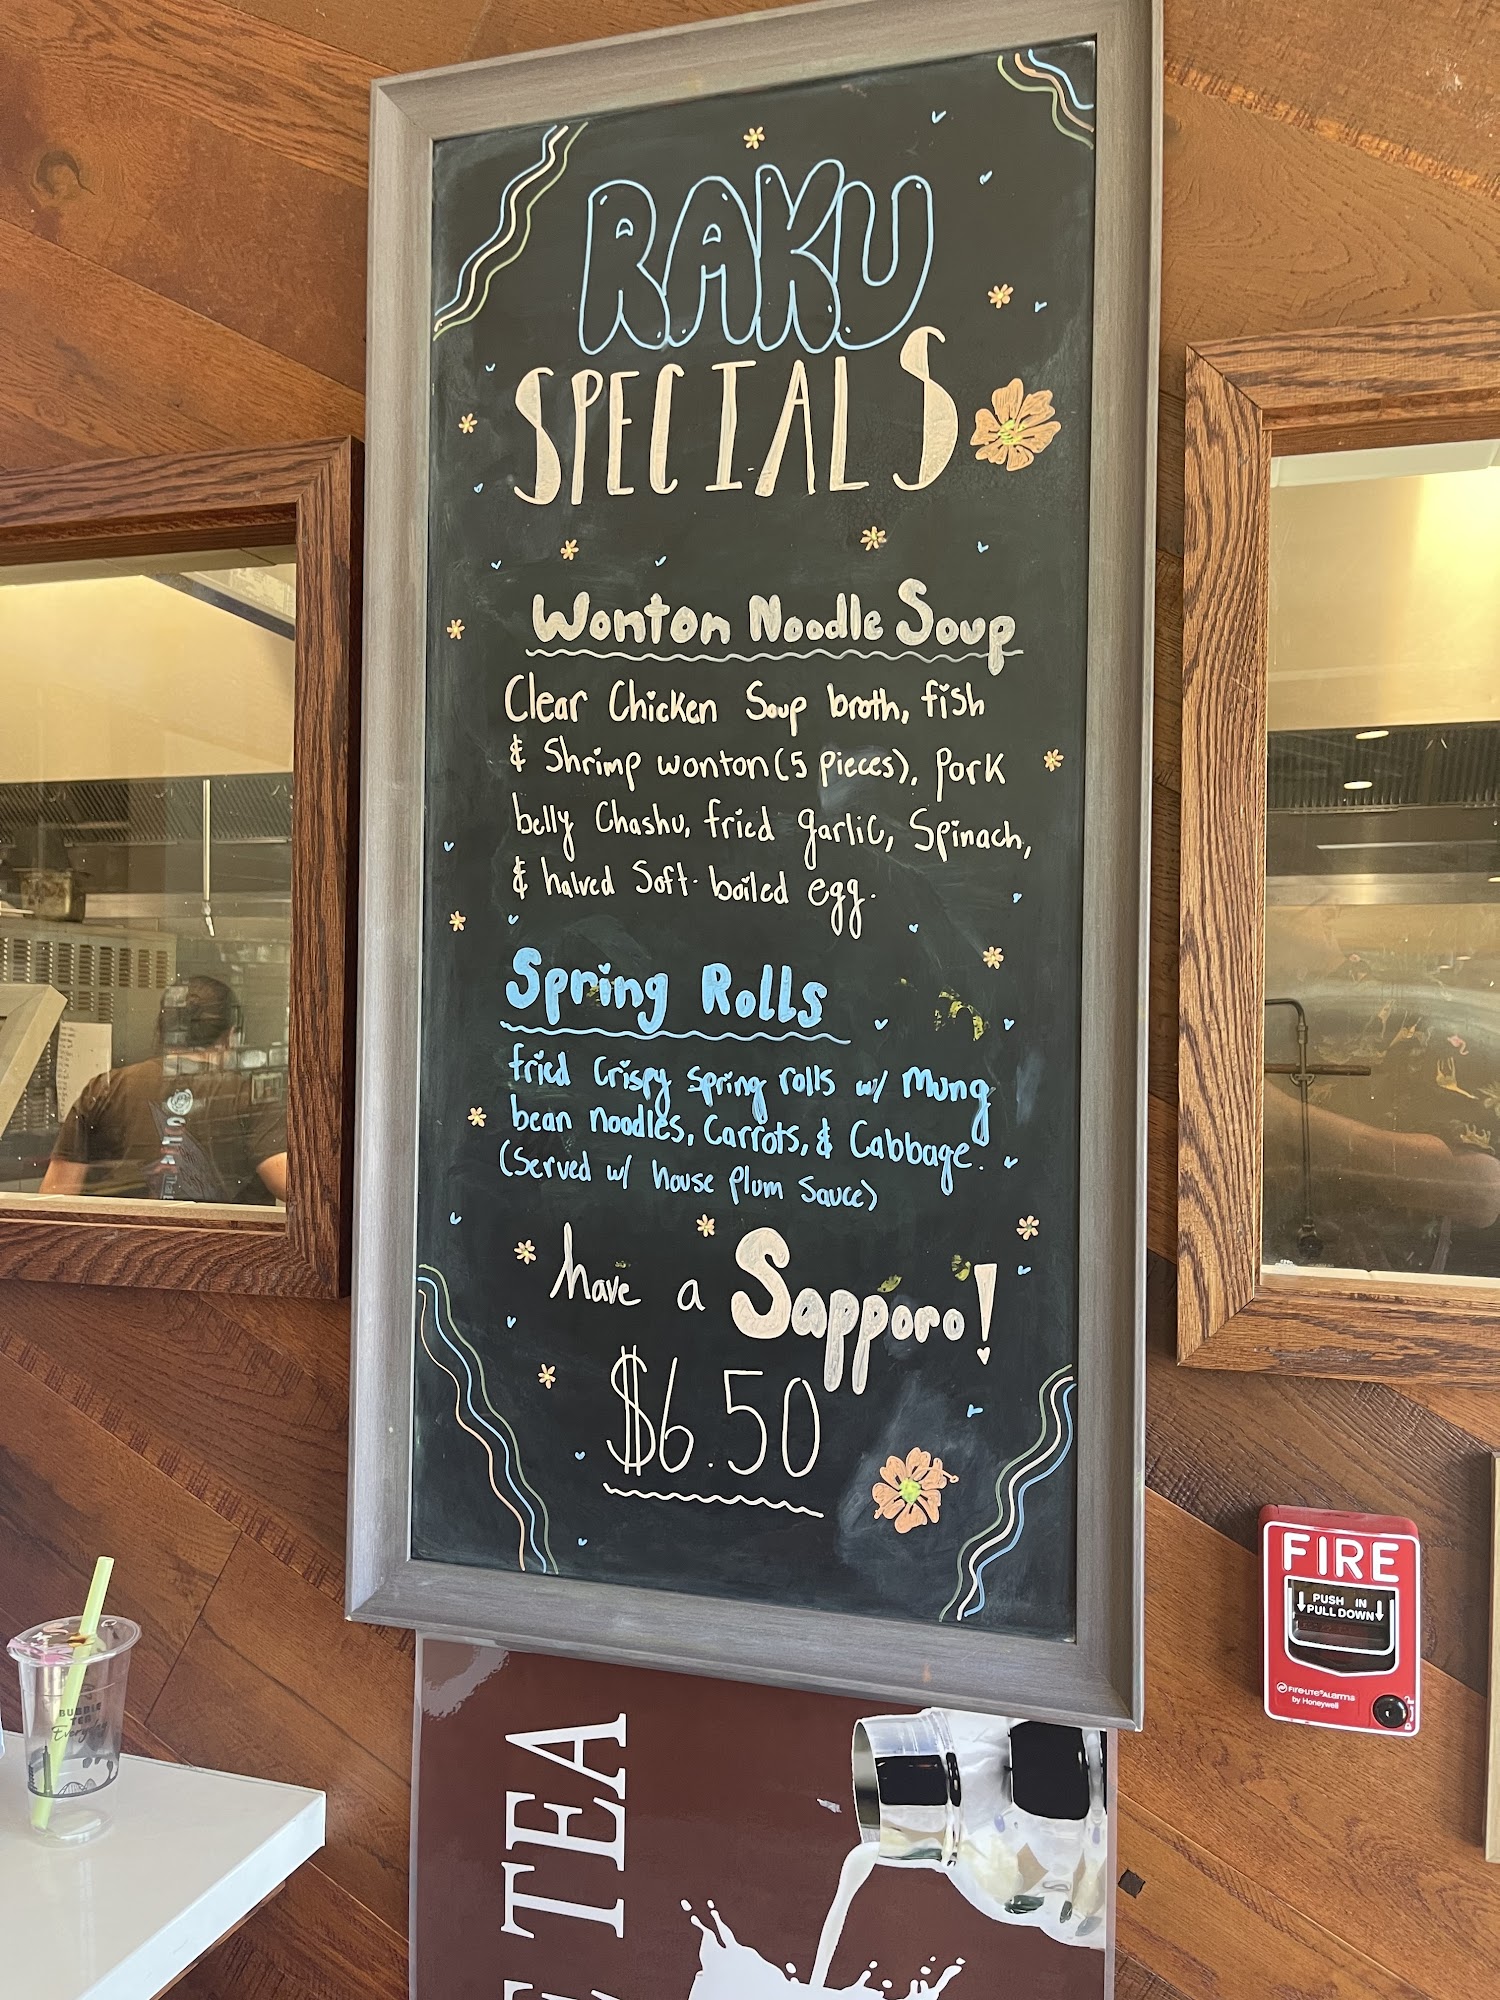 RAKU
SPECIALS
Wonton Noodle Soup
Clear Chicken Soup broth, fish
& Shrimp wonton (5 pieces), Pork
belly Chashu, fried garlic, Spinach,
& halved Soft-boiled egg.
Spring Rolls
fried Crispy spring rolls w/ Mung
bean noodles, Carrots, & Cabbage.
(Served w/ house Plum Sauce)
have a Sapporo!
$6.50
FIRE
PUSH IN
PULL DOWN
FIRE-LITE ALARMS
by Honeywell
BUBBLE
TEA
Everyday
TEA